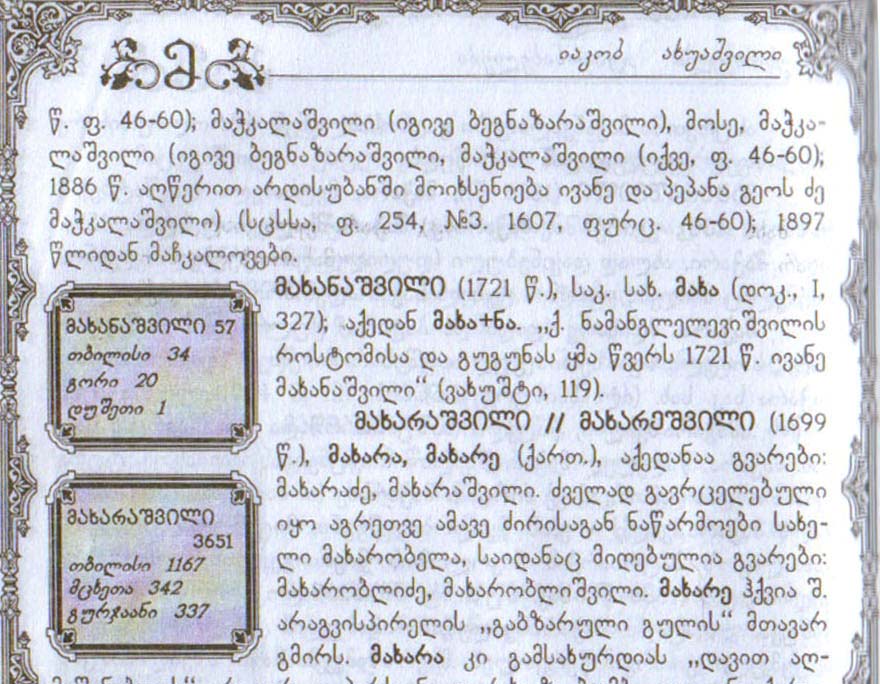 მ
იაკობ ახუაშვილი
წ. ფ. 46-60); მაჭკალაშვილი (იგივე ბეგნაზარაშვილი), მოსე, მაჭკა-
ლაშვილი (იგივე ბეგნაზარაშვილი, მაჭკალაშვილი (იქვე, ფ. 46-60);
1886 წ. აღწერით არდისუბანში მოიხსენიება ივანე და პეპანა გეოს ძე
მაჭკალაშვილი) (სცსსა, ფ. 254, №3, 1607, ფურც. 46-60); 1897
წლიდან მაჩკალოვები.
მახანაშვილი (1721 წ.), საკ. სახ. მახა (დოკ., I,
327); აქედან მახა+ნა. ,,ქ. ნამანგლელევიშვილის
როსტომისა და გუგუნას ყმა წვერს 1721 წ. ივანე
მახანაშვილი“ (ვახუშტი 119).
მახარაშვილი // მახარეშვილი (1699
წ.), მახარა, მახარე (ქართ.), აქედანაა გვარები:
მახარაძე, მახარაშვილი. ძველად გავრცელებული
იყო აგრეთვე ამავე ძირისაგან ნაწარმოები სახე-
ლი მახარობელა, საიდანაც მიღებულია გვარები:
მახარობლიძე, მახარობლიშვილი. მახარე ჰქვია შ.
არაგვისპირელის ,,გაბზარული გულის“ მთავარ
გმირს. მახარა კი გამსახურდიას ,,დავით აღ-
მახანაშვილი 57
თბილისი 34
გორი 20
დუშეთი 1
მახარაშვილი
3651
თბილისი 1167
მცხეთა 342
გურჯაანი 337